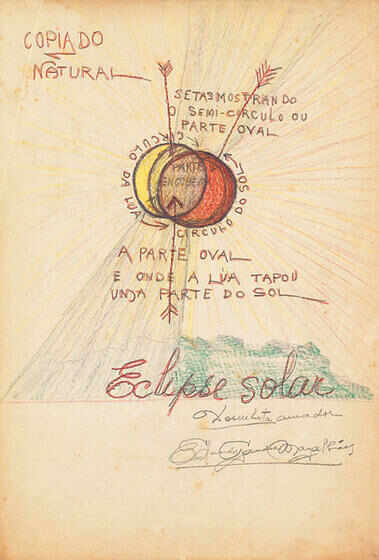 COPIADO
NATURAL
SETAS MOSTRANDO
O SEMI-CIRCULO OU
PARTE OVAL
CIRCULO DA LUA
PARTE
CIRCULO DO SOL
A PARTE OVAL
E ONDE A LUA TAPOU
UMA PARTE DO SOL
Eclipse solar
Desenhista amador